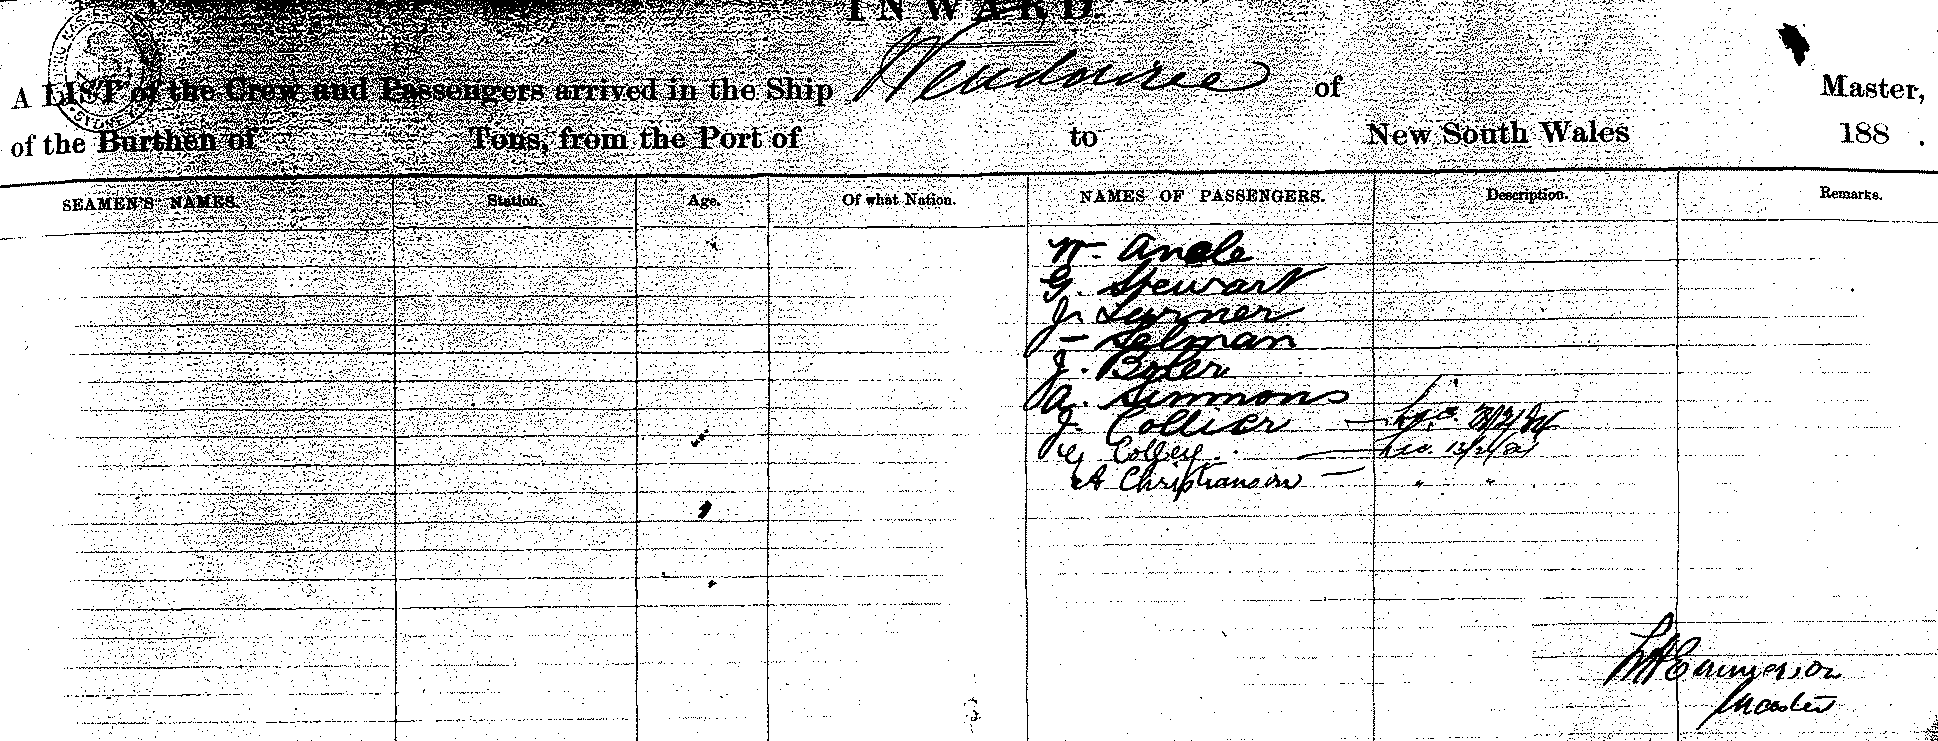 INWARD
A LIST of the Crew and Passengers arrived in the Ship Wendouree of Master,
of the Burthen of Tons, from the Port of to New South Wales 188 .
SEAMEN'S NAMES. Station. Age. Of what Nation. NAMES OF PASSENGERS. Description. Remarks.
W. Angle
G. Stewart
J. Turner
— Selman
J. Boler
A. Simmons
J. Collier —
G Colley —
A Christianson — " "
Master